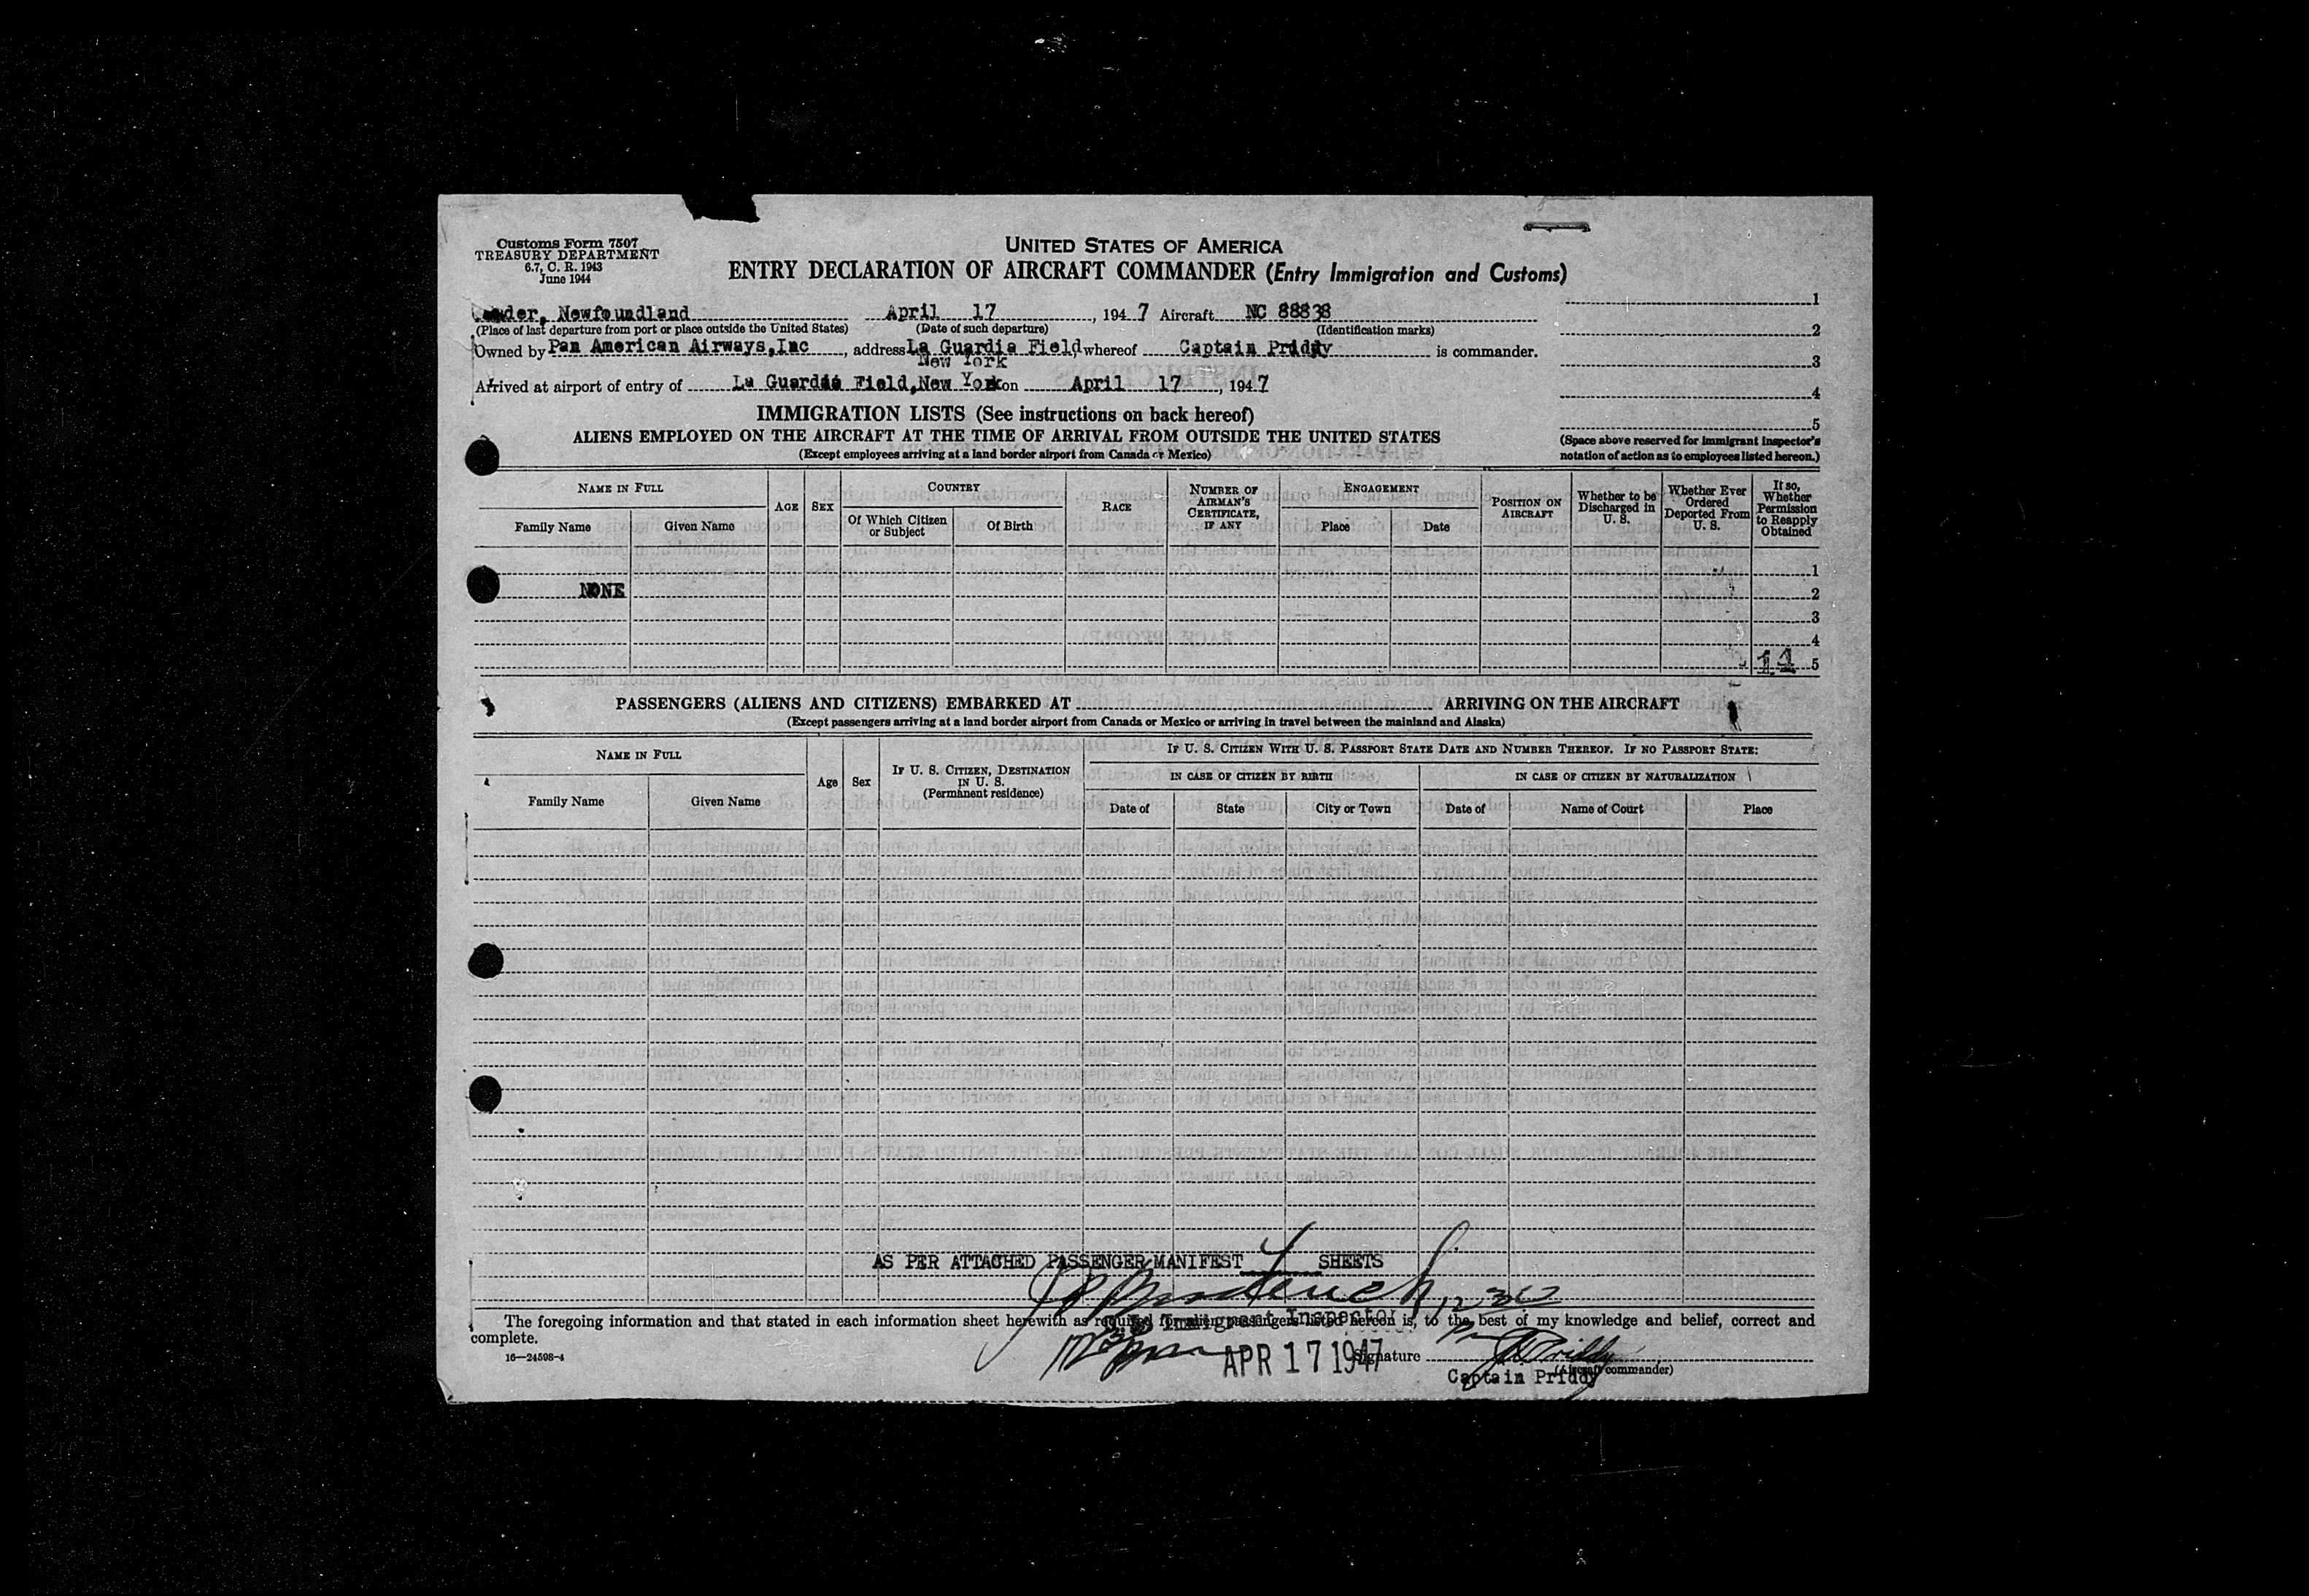 Customs Form 7507
TREASURY DEPARTMENT
6.7, C. R. 1943
June 1944
UNITED STATES OF AMERICA
ENTRY DECLARATION OF AIRCRAFT COMMANDER (Entry Immigration and Customs)
Newfoundland April 17, 1947 Aircraft NC 88838
(Place of last departure from port or place outside the United States) (Date of such departure) (Identification marks)
Owned by Pan American Airways, Inc, address La Guardia Field whereof Captain Priddy is commander.
New York
Arrived at airport of entry of La Guardia Field, New York on April 17, 1947
1
2
3
4
5
(Space above reserved for immigrant inspector's
notation of action as to employees listed hereon.)
IMMIGRATION LISTS (See instructions on back hereof)
ALIENS EMPLOYED ON THE AIRCRAFT AT THE TIME OF ARRIVAL FROM OUTSIDE THE UNITED STATES
(Except employees arriving at a land border airport from Canada or Mexico)
NAME IN FULL
Family Name Given Name
AGE
SEX
COUNTRY
Of Which Citizen or Subject Of Birth
RACE
NUMBER OF AIRMAN'S CERTIFICATE, IF ANY
ENGAGEMENT
Place Date
POSITION ON AIRCRAFT
Whether to be Discharged in U. S.
Whether Ever Ordered Deported From U. S.
If so, Whether Permission to Reapply Obtained
1
NONE 2
3
4
11 5
PASSENGERS (ALIENS AND CITIZENS) EMBARKED AT ARRIVING ON THE AIRCRAFT
(Except passengers arriving at a land border airport from Canada or Mexico or arriving in travel between the mainland and Alaska)
NAME IN FULL
Family Name Given Name
Age
Sex
IF U. S. CITIZEN, DESTINATION IN U. S.
(Permanent residence)
IF U. S. CITIZEN WITH U. S. PASSPORT STATE DATE AND NUMBER THEREOF. IF NO PASSPORT STATE:
IN CASE OF CITIZEN BY BIRTH
Date of State City or Town
IN CASE OF CITIZEN BY NATURALIZATION
Date of Name of Court Place
AS PER ATTACHED PASSENGER MANIFEST SHEETS
The foregoing information and that stated in each information sheet herewith as required for alien passengers listed hereon is, to the best of my knowledge and belief, correct and
complete.
Immigrant Inspector
16—24598-4
APR 17 1947
Signature Priddy
(Aircraft commander)
Captain Priddy